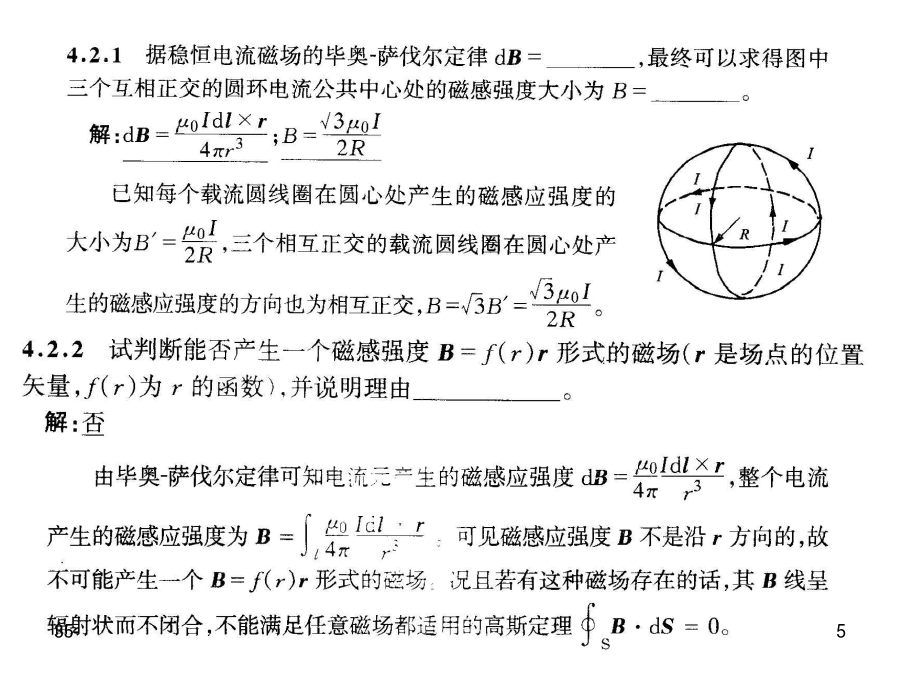 4.2.1 据稳恒电流磁场的毕奥-萨伐尔定律 dB = ________,最终可以求得图中
三个互相正交的圆环电流公共中心处的磁感强度大小为 B = ________。
解:dB = μ₀Idl × r / 4πr³ ; B = √3μ₀I / 2R
已知每个载流圆线圈在圆心处产生的磁感应强度的
大小为B′ = μ₀I / 2R ,三个相互正交的载流圆线圈在圆心处产
生的磁感应强度的方向也为相互正交,B = √3B′ = √3μ₀I / 2R 。
I
I
I
I
R
I
I
I
4.2.2 试判断能否产生一个磁感强度 B = f(r)r 形式的磁场(r 是场点的位置
矢量,f(r)为 r 的函数),并说明理由____________。
解:否
由毕奥-萨伐尔定律可知电流元产生的磁感应强度 dB = μ₀/4π Idl × r / r³ ,整个电流
产生的磁感应强度为 B = ∫L μ₀/4π Idl r / r³ 可见磁感应强度 B 不是沿 r 方向的,故
不可能产生一个 B = f(r)r 形式的磁场。况且若有这种磁场存在的话,其 B 线呈
辐射状而不闭合,不能满足任意磁场都适用的高斯定理 ∮S B · dS = 0。
5